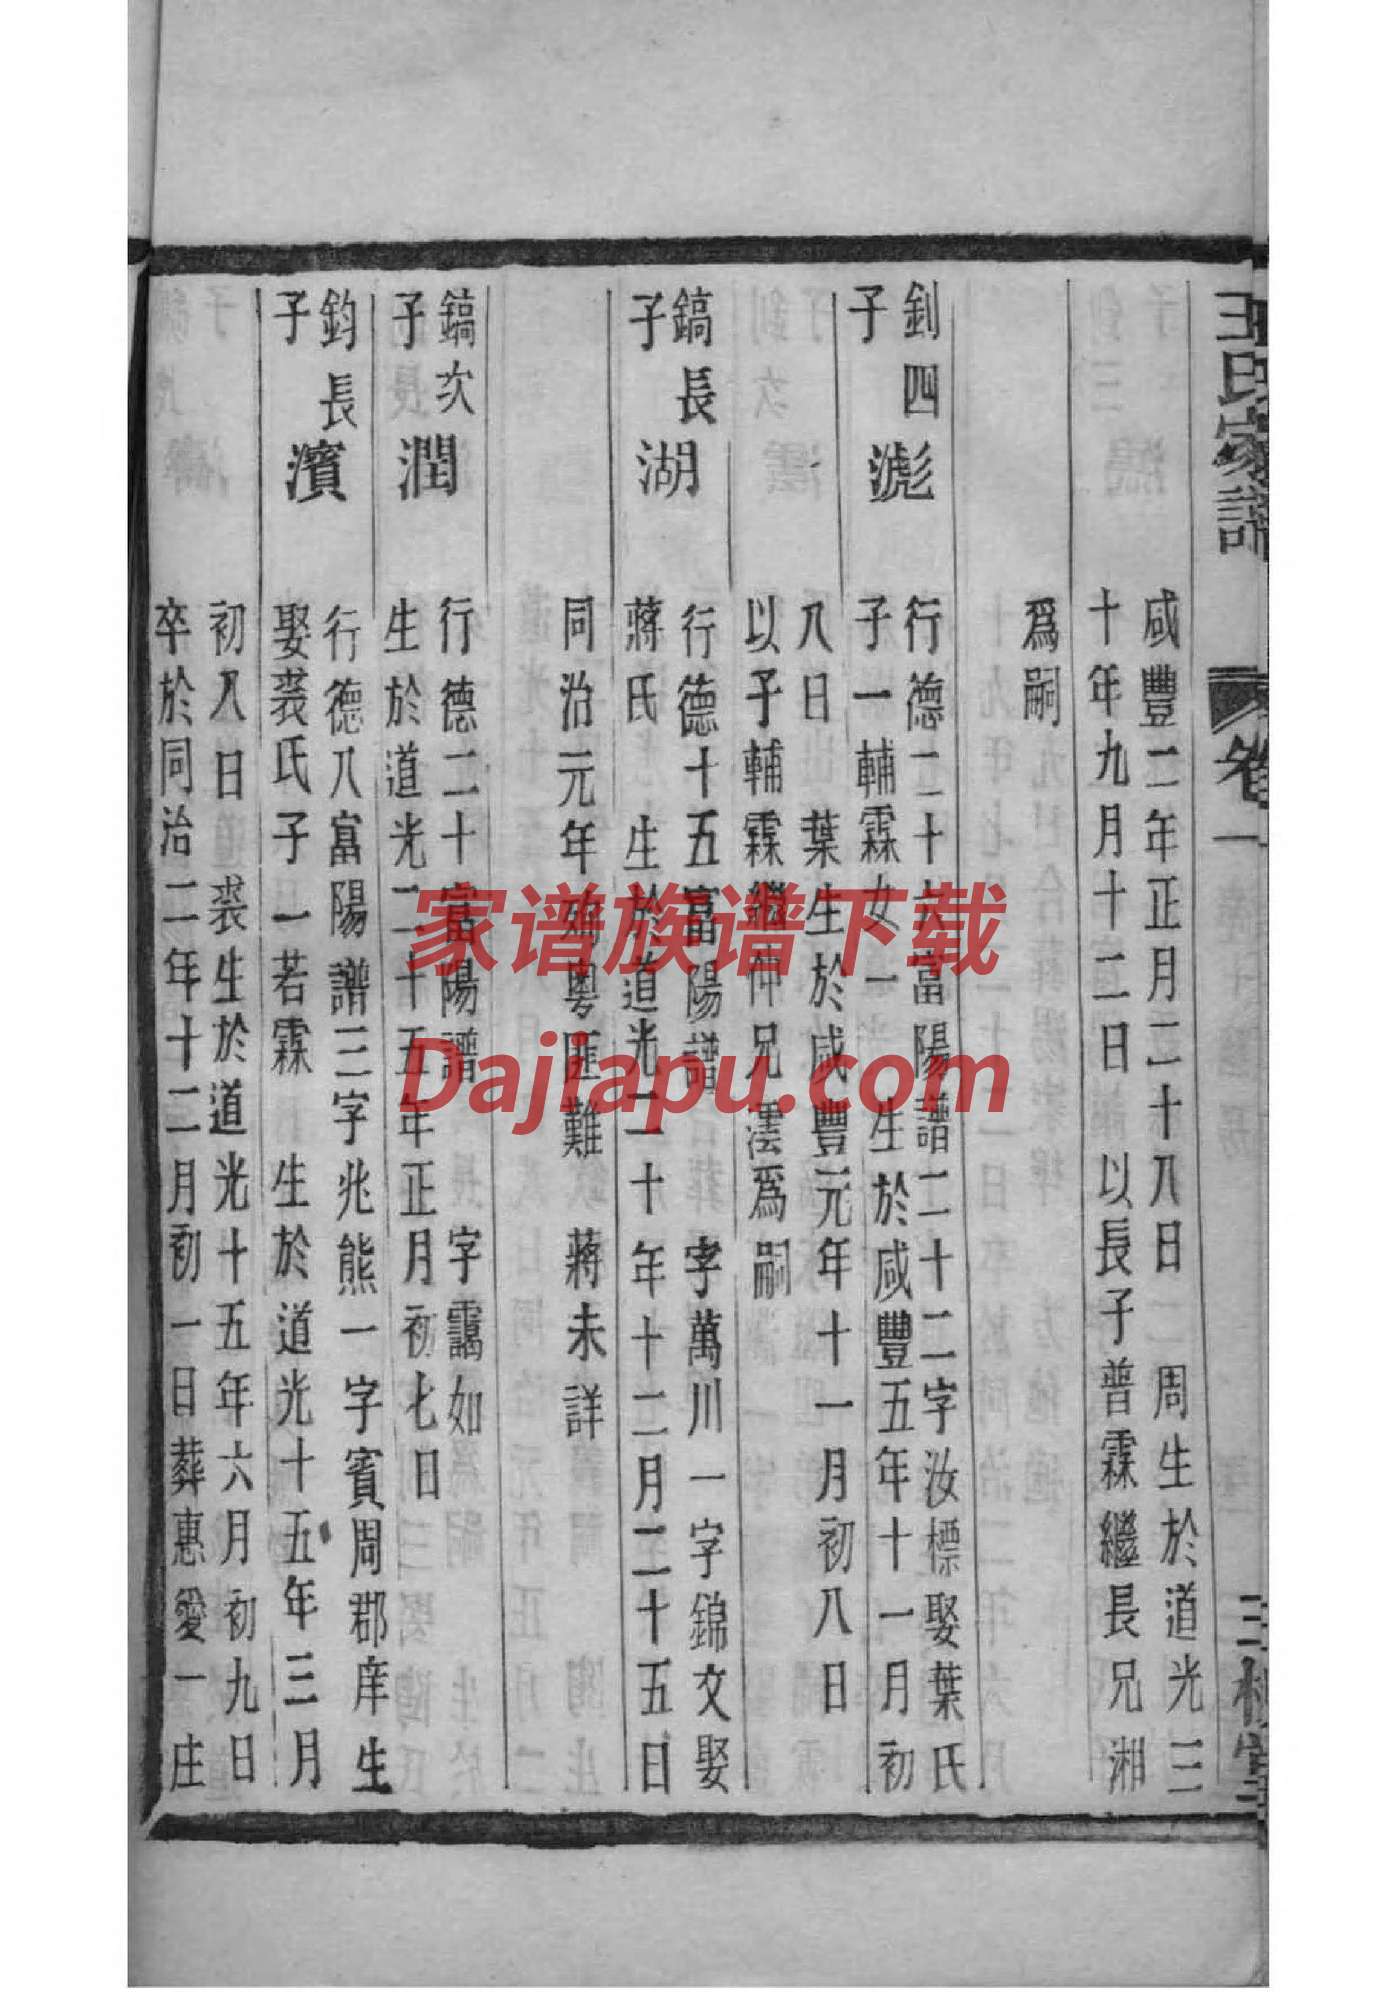 王氏家譜
卷一
三槐堂
咸豐二年正月二十八日 周生於道光三
十年九月十二日 以長子普霖繼長兄湘
爲嗣
釗四
子
滮
行德二十六富陽譜二十二字汝標娶葉氏
子一輔霖女一 生於咸豐五年十一月初
八日 葉生於咸豐元年十一月初八日
以子輔霖繼仲兄澐爲嗣
鎬長
子
湖
行德十五富陽譜 字萬川一字錦文娶
蔣氏 生於道光二十年十二月二十五日
同治元年殉粵匪難 蔣未詳
鎬次
子
潤
行德二十富陽譜 字靄如
生於道光二十五年正月初七日
鈞長
子
濱
行德八富陽譜三字兆熊一字賓周郡庠生
娶裘氏子一若霖 生於道光十五年三月
初八日 裘生於道光十五年六月初九日
卒於同治二年十二月初一日葬惠愛一庄
家谱族谱下载
Dajiapu.com